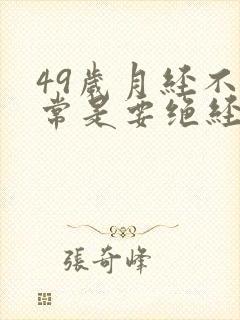 49歲月经不
常是要绝経
張奇峰